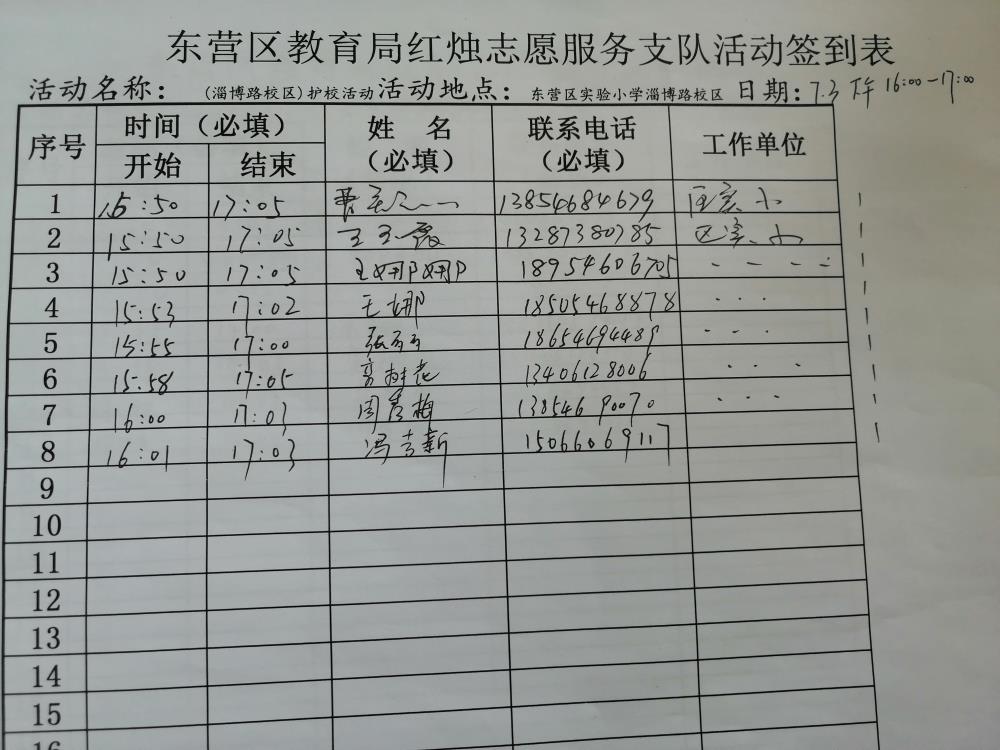 东营区教育局红烛志愿服务支队活动签到表
活动名称：（淄博路校区）护校活动 活动地点：东营区实验小学淄博路校区 日期：7.3 下午 16:00-17:00
序号 时间（必填） 姓 名（必填） 联系电话（必填） 工作单位
开始 结束
1 15:50 17:05 13854684679 区实小 1
2 15:50 17:05 王玉霞 13287380785 区实小 1
3 15:50 17:05 王娜娜 18954606705 1
4 15:53 17:02 王娜 18505468878 . . . 1
5 15:55 17:00 张 18654694489 . . . 1
6 15:58 17:05 树花 13406128006 . . . 1
7 16:00 17:03 周秀梅 13854690070 . . . 1
8 16:01 17:03 冯吉新 15066069117 1
9
10
11
12
13
14
15
16